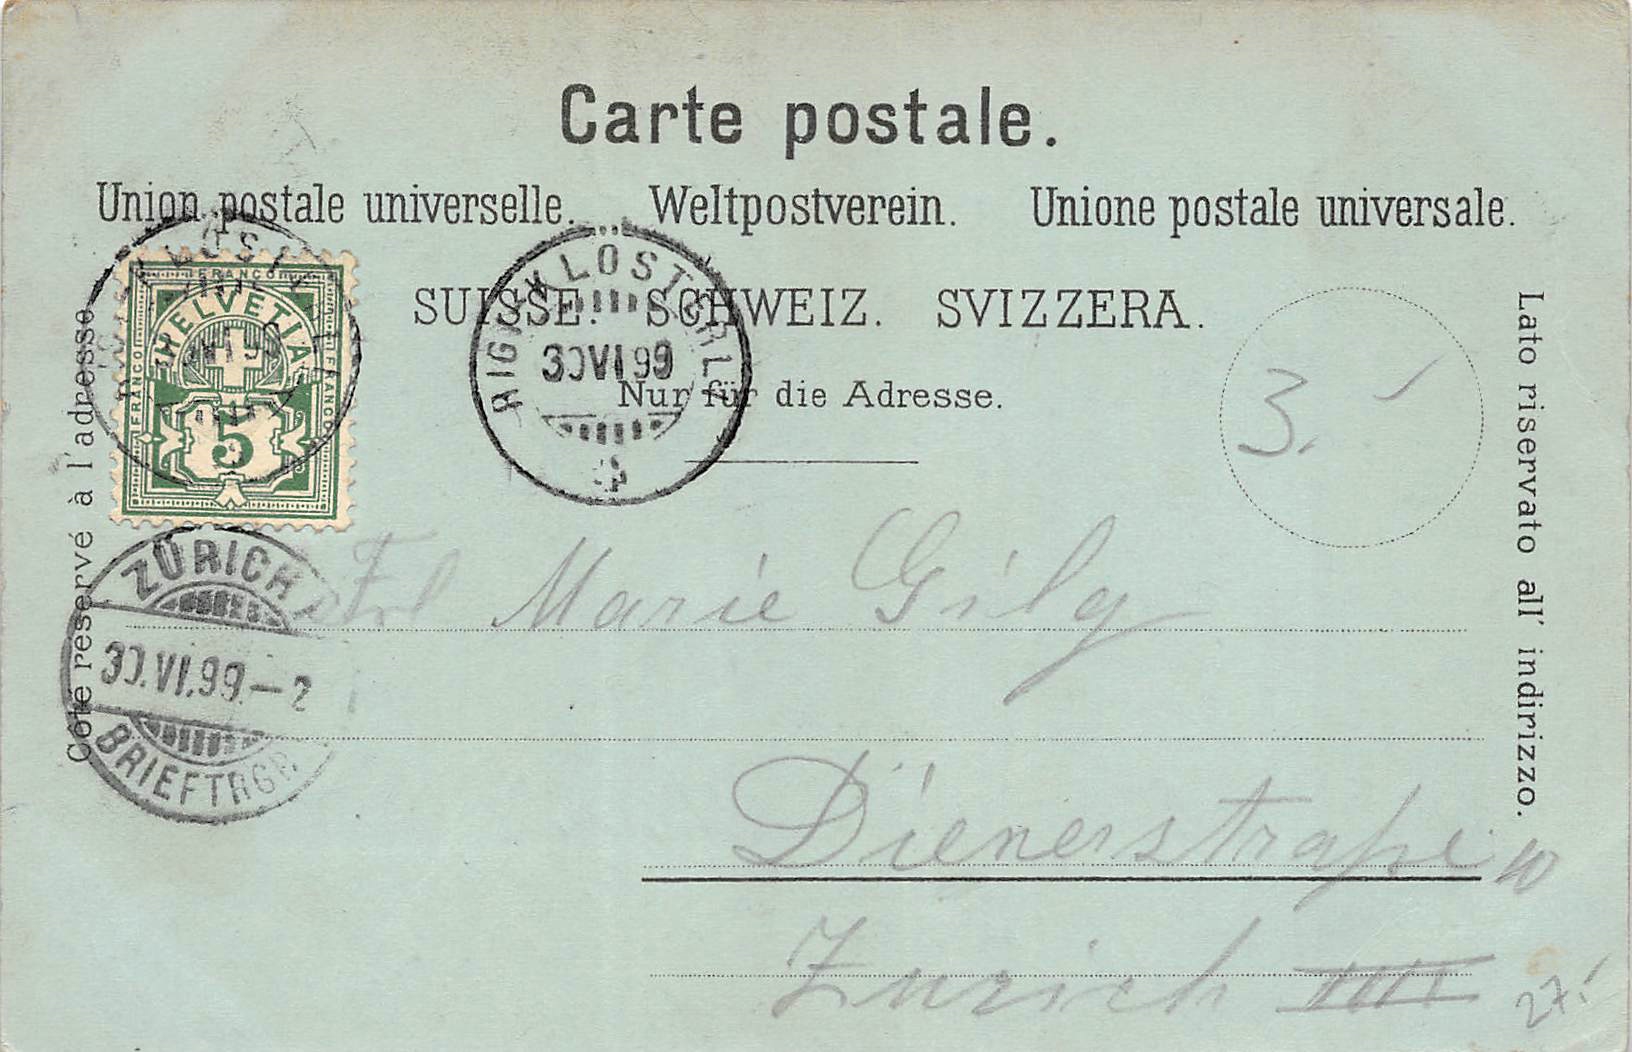 Carte postale.
Union postale universelle. Weltpostverein. Unione postale universale.
SUISSE. SCHWEIZ. SVIZZERA.
Nur für die Adresse.
Côté reservé à l'adresse.
Lato riservato all' indirizzo.
FRANCO
HELVETIA
FRANCO
FRANCO
5
RIGI-KLÖSTERLI
30 VI 99
ZÜRICH
30.VI.99.-2
BRIEFTRG
3.-
Frl Marie Gilg
Dienerstraße 10
Zürich III
27.